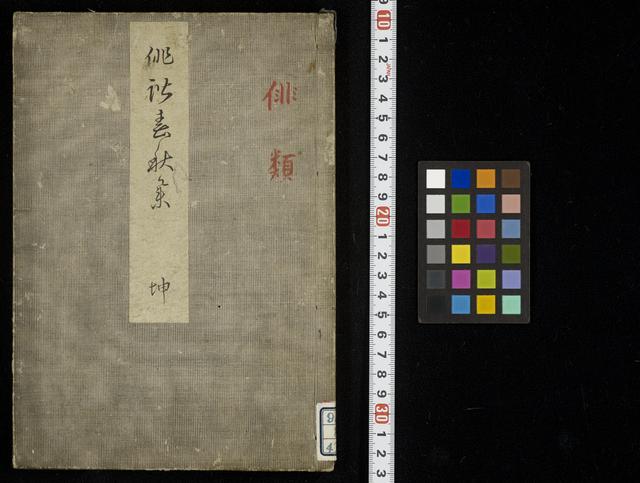 俳類
俳諧春秋集 坤
9
4
9 10 1 2 3 4 5 6 7 8 9 20 1 2 3 4 5 6 7 8 9 30 1 2 3